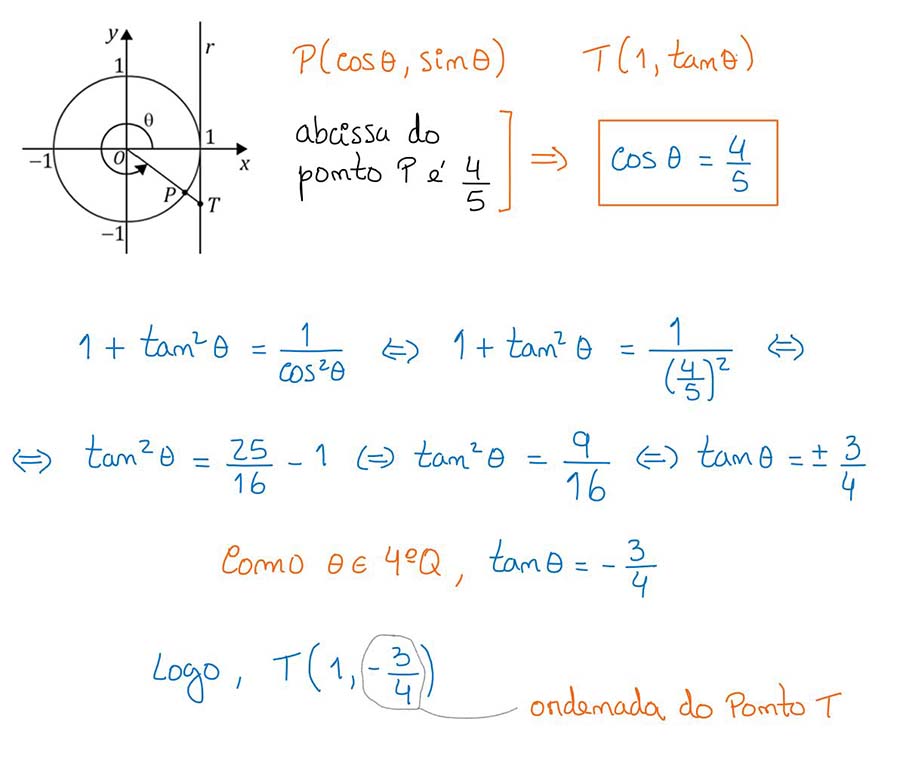 y
r
1
θ
1
−1
O
x
P
T
−1
P(cosθ, sinθ)
T(1, tanθ)
abcissa do
ponto P é 4/5
⇒ cos θ = 4/5
1 + tan²θ = 1/cos²θ ⇔ 1 + tan²θ = 1/(4/5)² ⇔
⇔ tan²θ = 25/16 − 1 ⇔ tan²θ = 9/16 ⇔ tanθ = ± 3/4
Como θ ∈ 4ºQ, tanθ = − 3/4
Logo, T(1, −3/4)
ordenada do Ponto T